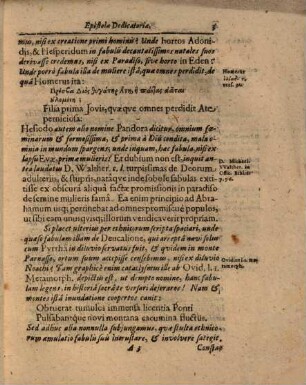 Epistola Dedicatoria.
mus, nisi ex creatione primi hominis? Unde hortos Adoni-
dis, & Hesperidum in fabulis decantatissimos natales suos
derivasse credemus, nisi ex Paradiso, sive horto in Eden?
Unde porrò fabula illa de muliere istâ, quæ omnes perdidit, de
quâ Homerus ita:
Filia prima Jovis, quæque omnes perdidit Ate
Perniciosa:
Hesiodo autem alio nomine Pandora dicitur, omnium fœ-
minarum & formosissima, & prima à Diis condita, malum o-
mnia in mundum spargens; unde inquam, hæc fabula, nisi ex
lapsu Evæ primæ mulieris? Et dubium non est, inquit ante
laudatus D. Walther. c. l. turpissimas de Deorum
adulteriis, & stupris, natas inde fœdasse fabulas ex-
isse ex obscurâ aliquâ factæ promissionis in paradiso
de semine mulieris famâ. Ea enim primitus ad Abra-
hamum usq; pertinebat ad omnes promiscuè populos,
ut sibi eam unusquisq; illorum vendicaverit propriam.
Si placet ulterius per ethnicorum scripta spatiari, un-
de quæso fabulam istam de Deucalione, qui arreptâ novâ
Pyrrhâ in diluvio servatus fuit, & quidem in monte
Parnasso, ortam suam accepisse censebimus, nisi ex diluvio
Noachi? Tam graphicè enim cataclysmus ille ab Ovid. l. 1.
Metamorph. depictus est, ut dempto nomine, hanc fabu-
lam legens, in historiâ sacrâ te versari deierares! Nam &
montes istâ inundatione coopertos canit:
Obruerat tumulos immensa licentia Ponti
Pulsabantque novi montana cacumina fluctus.
Sed adhuc alia nonnulla subjungamus, quæ stulta ethnico-
rum æmulatio fabulis suis incrustare, & involvere satagit.
A 3
Constat
Homerus
D. Michael
Walther. in
Ovidius l. 1.
metamorph.